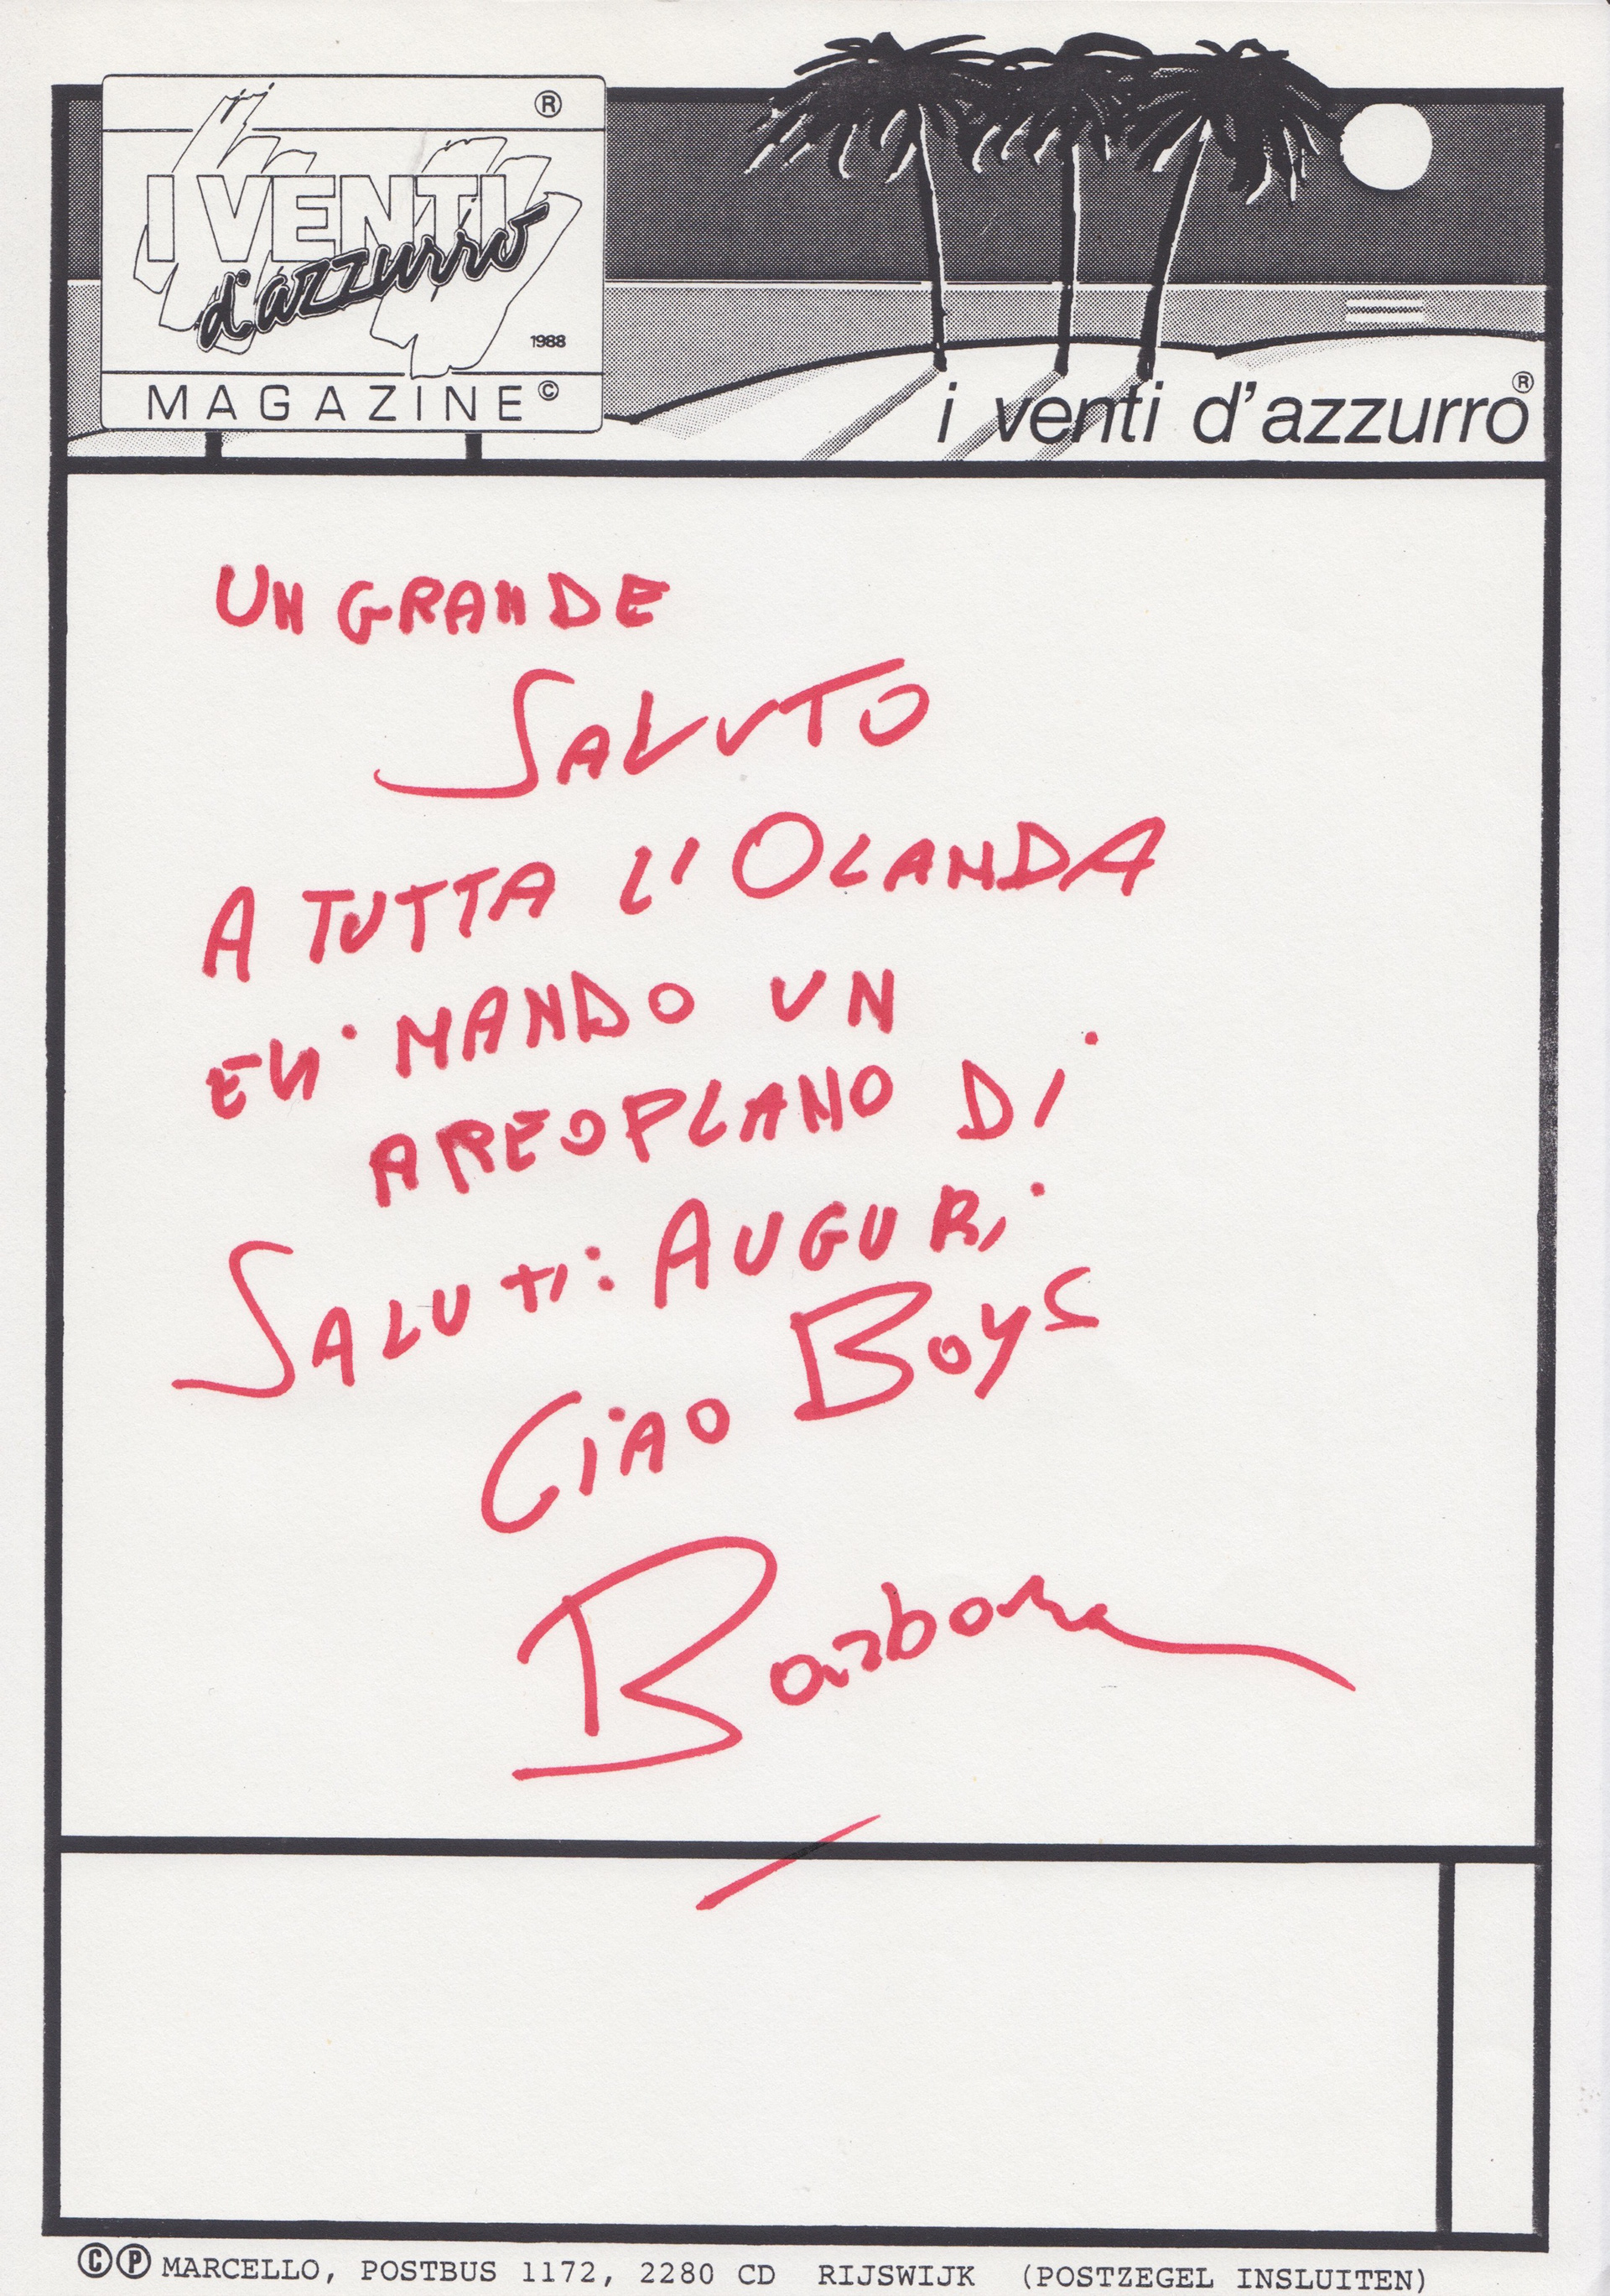 ®
I VENTI
d'azzurro
1988
MAGAZINE©
i venti d'azzurro®
UN GRANDE
SALUTO
A TUTTA L'OLANDA
E VI MANDO UN
AREOPLANO DI
SALUTI: AUGURI
CIAO BOYS
Barbara
©Ⓟ MARCELLO, POSTBUS 1172, 2280 CD RIJSWIJK (POSTZEGEL INSLUITEN)